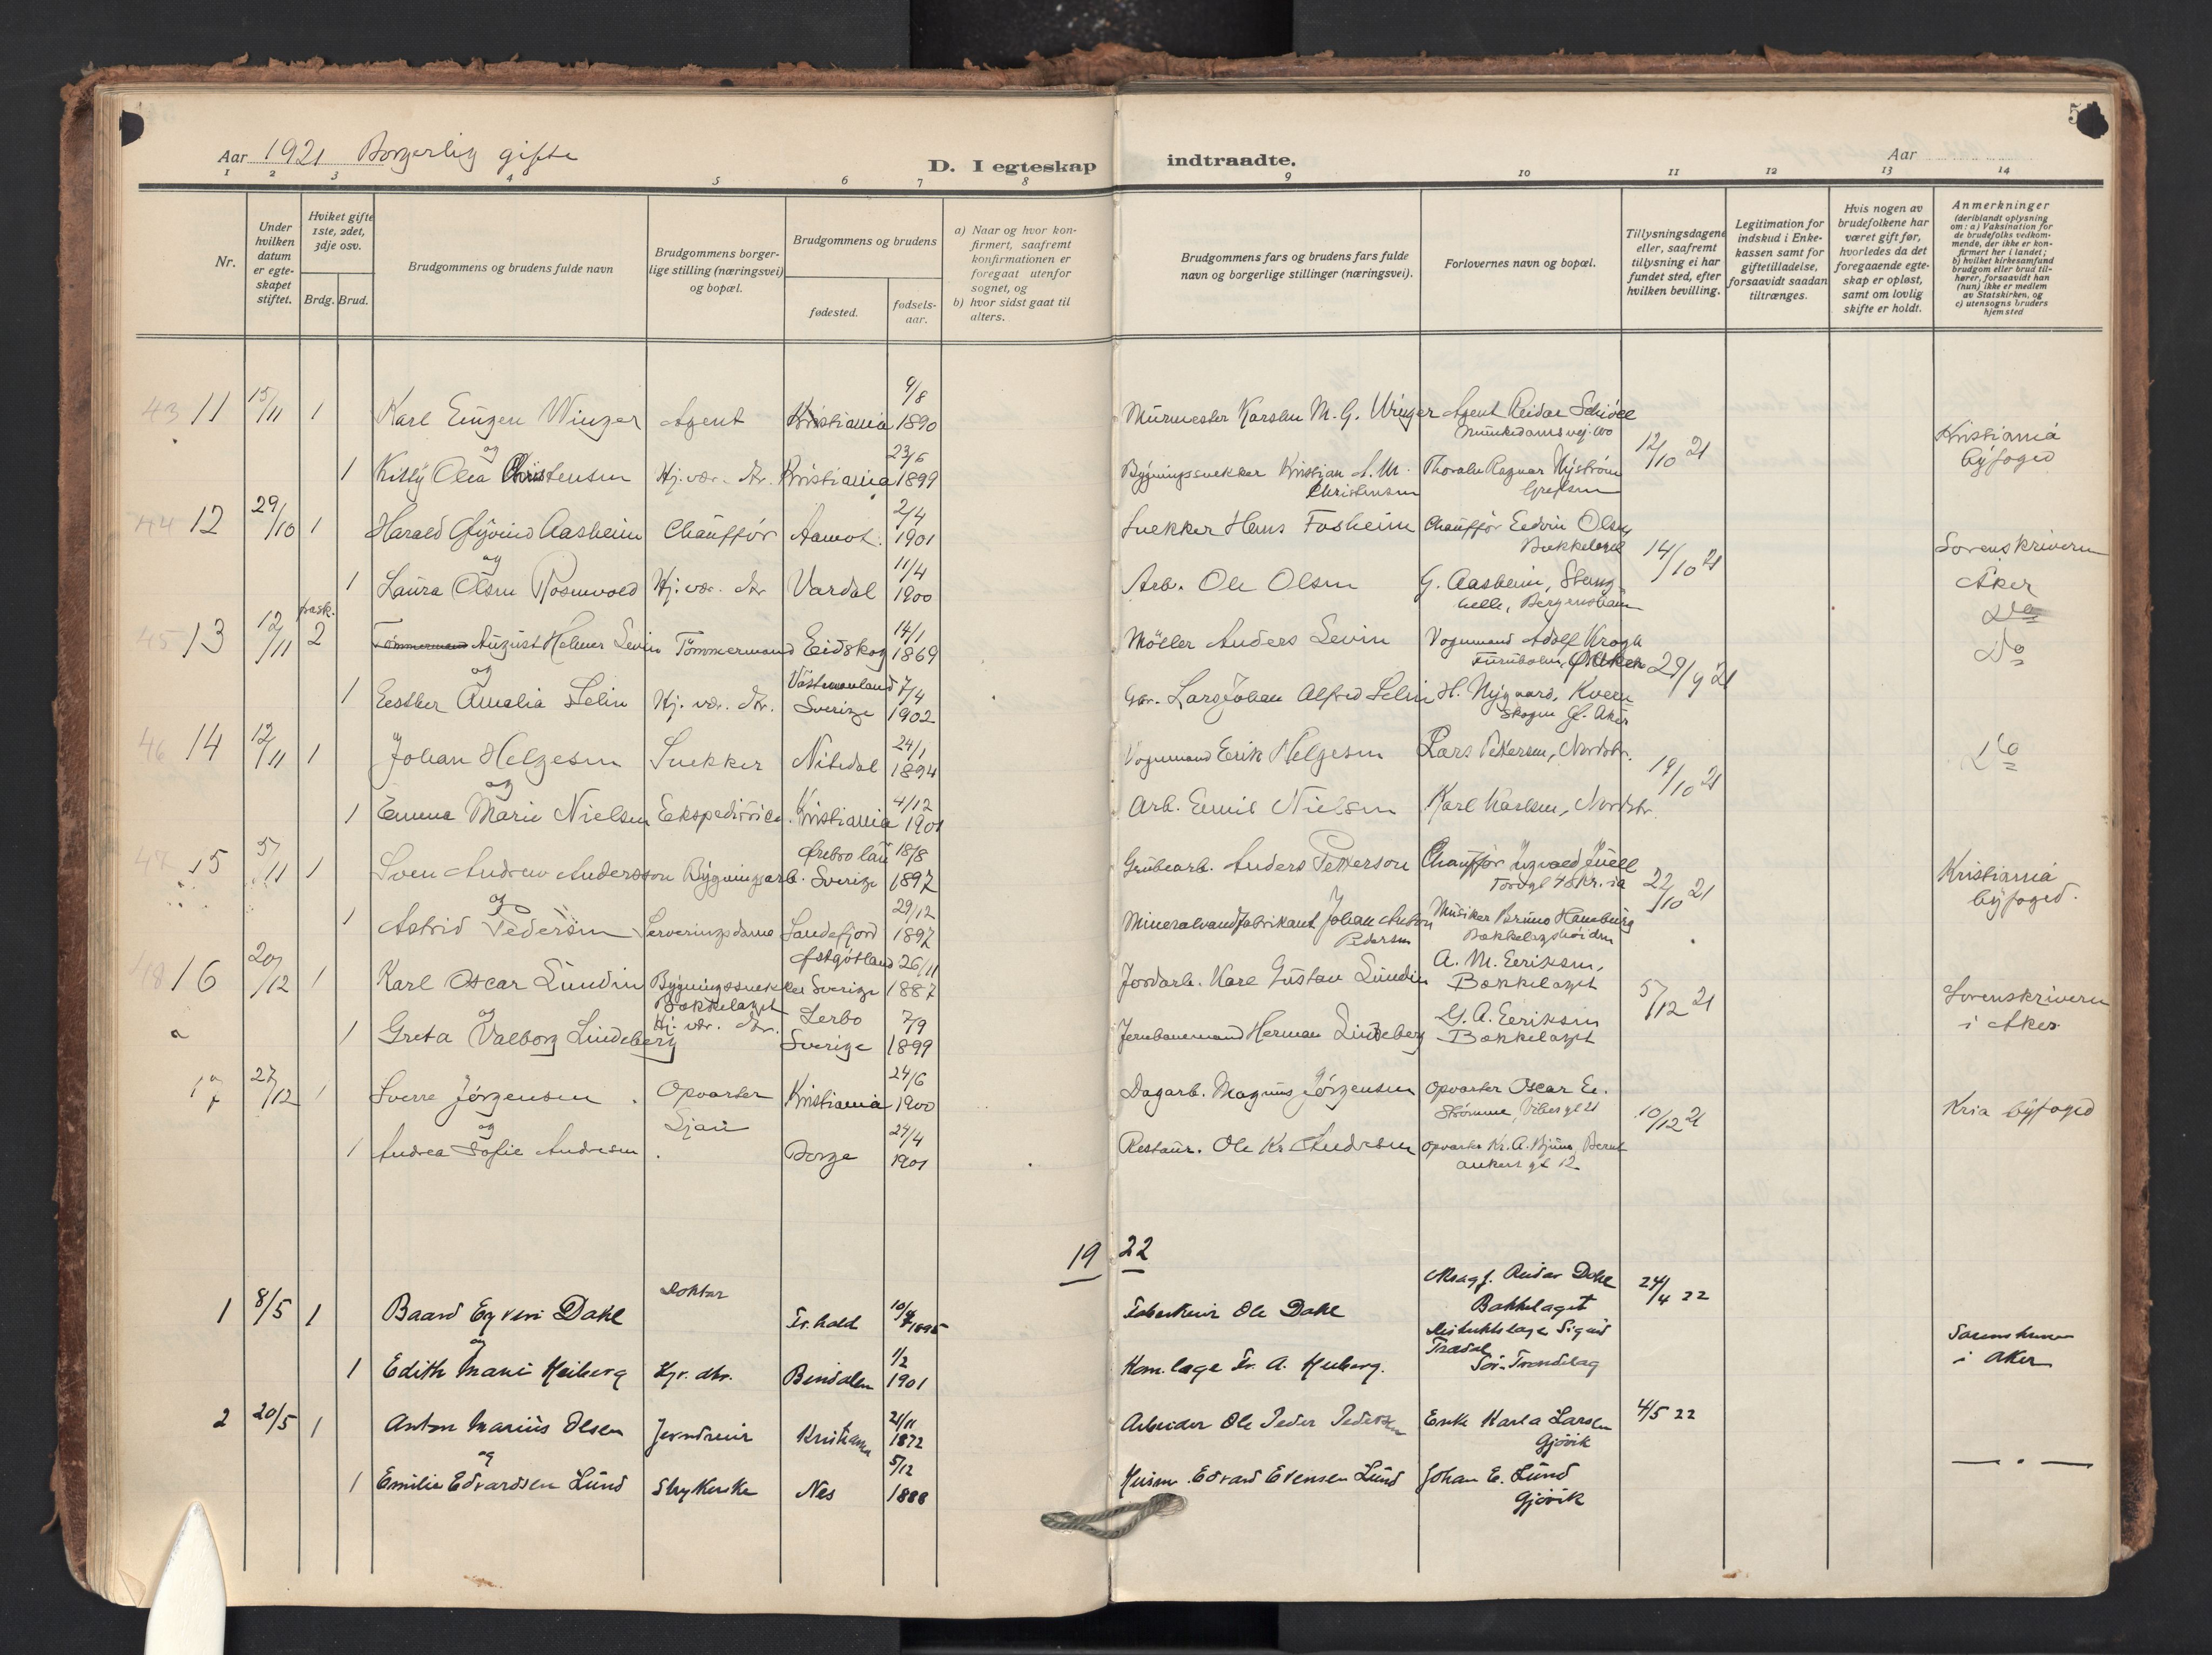 Aar 1921 Borgerlig gifte
D. I egteskap indtraadte.
Aar
1 2 3 4 5 6 7 8 9 10 11 12 13 14
Nr.
Under hvilken datum er egteskapet stiftet.
Hviket gifte 1ste, 2det, 3dje osv.
Brdg. Brud.
Brudgommens og brudens fulde navn
Brudgommens borgerlige stilling (næringsvei) og bopæl.
Brudgommens og brudens
fødested.
fødselsaar.
a) Naar og hvor konfirmert, saafremt konfirmationen er foregaat utenfor sognet, og
b) hvor sidst gaat til alters.
Brudgommens fars og brudens fars fulde navn og borgerlige stillinger (næringsvei).
Forlovernes navn og bopæl.
Tillysningsdagene eller, saafremt tillysning ei har fundet sted, efter hvilken bevilling.
Legitimation for indskud i Enkekassen samt for giftetilladelse, forsaavidt saadan tiltrænges.
Hvis nogen av brudefolkene har været gift før, hvorledes da det foregaaende egteskap er opløst, samt om lovlig skifte er holdt.
Anmerkninger (deriblandt oplysning om: a) Vaksination for de brudefolks vedkommende, der ikke er konfirmert her i landet; b) hvilket kirkesamfund brudgom eller brud tilhører, forsaavidt han (hun) ikke er medlem av Statskirken, og c) utensogns bruders hjemsted
43 11 15/11 1 Karl Eugen Winger Agent Kristiania 9/8 1890 Murmester Karsten M. G. Winger Agent Reidar Schiöll
Munkedamsvej. 100
12/10 21 Kristiania byfoged
og
1 Kitty Olea Christensen Hj. vær. dtr. Kristiania 23/6 1899 Bygningssnekker Kristian A. M. Christensen Thoralv Ragnar Nyström
Grefsen
44 12 29/10 1 Harald Øyvind Aasheim Chauffør Aamot 2/4 1901 Snekker Hans Fosheim Chauffør Edvin Olsen
Bækkelaget
14/10 21 Sorenskriveren Aker
og
1 Laura Olsen Rosenvold Hj. vær. dtr Vardal 11/4 1900 Arb. Ole Olsen G. Aasheim, Stanghelle, Bergensbanen
45 13 12/11 frask. 2 Tømmermand August Helmer Levin Tömmermand Eidskog 14/1 1869 Möller Anders Levin Vognmand Adolf Krogh
Furuholm, Ø. Aker
29/9 21 Do
og
1 Esther Amalia Selin Hj. vær. dtr. Västmanland Sverige 7/4 1902 Lars Johan Alfred Selin H. Nygaard, Kvernskogen
Ø. Aker
46 14 12/11 1 Johan Helgesen Snekker Nitedal 24/1 1894 Vognmand Erik Helgesen Lars Pettersen, Nordstr.
19/10 21 Do
og
1 Emma Marie Nielsen Ekspeditrice Kristiania 4/12 1901 Arb. Emil Nielsen Karl Karlsen, Nordstr.
47 15 5/11 1 Sven Andrew Andersson Bygningsarb. Ørebro län Sverige 18/8 1897 Grubearb. Anders Petterson Chauffør Ingvald Juell
Torvgt 48 Kr.ia
22/10 21 Kristiania byfoged.
og
1 Astrid Pedersen Serveringsdame Sandefjord 29/12 1897 Mineralvandfabrikant Johan Anton Pedersen Musiker Bruno Hamburg
Bækkelagshøiden
48 16 20/12 1 Karl Oscar Lundin Bygningssnekker Bækkelaget Østgötland Sverige 26/11 1887 Jordarb. Karl Gustav Lundin A. M. Eriksen,
Bækkelaget
5/12 21 Sorenskriveren i Aker
og
1 Greta Valborg Lindeberg Hj. vær. dtr. Lerbo Sverige 7/9 1899 Jernbanemand Herman Lindeberg G. A. Eriksen
Bækkelaget
17 27/12 1 Sverre Jørgensen Opvarter Ljan Kristiania 24/6 1900 Dagarb. Magnus Jørgensen Opvarter Oscar E.
Strømme, Vibesgt 21
10/12 21 Kria byfoged
og
1 Andrea Sofie Andresen Borge 24/4 1901 Restaur. Ole Kr. Andresen Opvarter Kr. A. Bjune, Bernt
Ankers gt 12
19 22
1 8/5 1 Baard Eyvin Dahl Doktor Fr.hald 10/4 1895 Ole Dahl Reidar Dahl
Bækkelaget
24/4 22 Sorenskriver i Aker
og
1 Edith Marie Heiberg Hjv. dtr. Bindalen 1/2 1901 Kom.læge Fr. A. Heiberg. Distriktslæge Sigurd
Trædal
Sör-Trøndelag
2 20/5 1 Anton Marius Olsen Jerndreier Kristiania 21/11 1872 Arbeider Ole Peder Pedersen Enke Karla Larsen
Gjøvik
4/5 22
og
1 Emilie Edvardsen Lund Strykerske Nes 5/12 1888 Husm. Edvard Evensen Lund Johan E. Lund
Gjøvik
— „ —